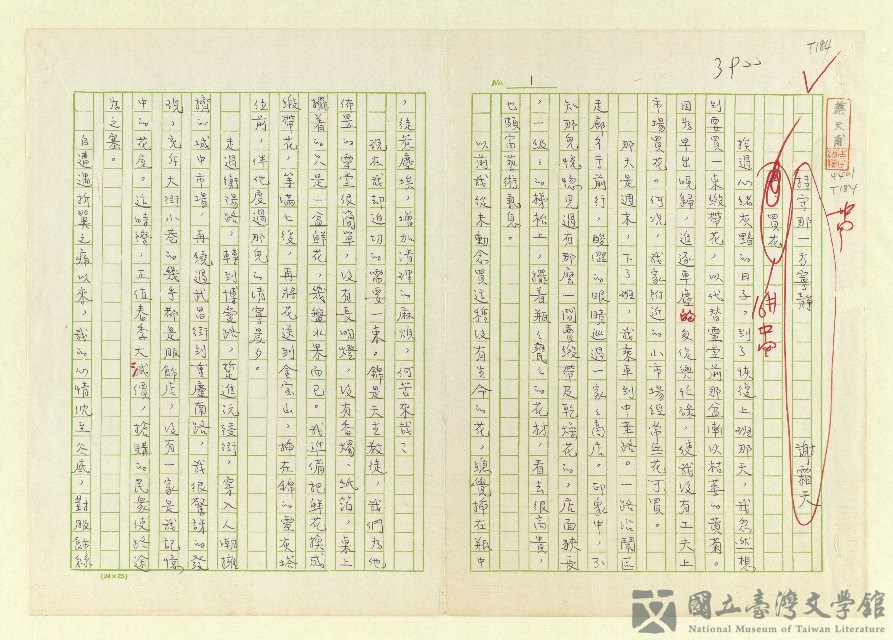 T184
3P00
No. 1
龔天甫
440
T184
中
固守那一方寧靜 謝霜天
買花
16井中
挨過心緒灰黯的日子，到了恢復上班那天，我忽然想
到要買一束緞帶花，以代替靈堂前那盆漸以枯萎的黃菊。
因為早出晚歸，追逐車塵的多役與忙碌，使我沒有工夫上
市場買花。何況，我家附近的小市場經常無花可買。
那天是週末，下了班，我乘車到中華路。一路沿鬧區
走廊行行前行，酸澀的眼睛巡過一家家商店。印象中，不
知那兒恍惚見過有那麼一間賣緞帶及乾燥花的，店面狹長
，一級級的梯板上，擺着瓶瓶甕甕的花材，看去很高貴，
也頗富藝術氣息。
以前我從未動念買這種沒有生命的花，總覺插在瓶中
，徒惹塵埃，增加清理的麻煩，何苦來哉？
現在我却迫切的需要一束。錦是天主教徒，我們為他
佈置的靈堂很簡單，沒有長明燈，沒有香燭、紙箔，桌上
擺着的只是一盆鮮花，幾盤水果而已。我準備把鮮花換成
緞帶花，等滿七後，再將花送到金寶山，插在錦的靈灰塔
位前，伴他度過那兒的清寧晨夕。
走過衡陽路，轉到博愛路，楚進沅陵街，穿入人潮擁
擠的城中市場，再繞過武昌街到重慶南路，我很驚訝的發
現，充斥大街小巷的幾乎都是服飾店，沒有一家是我記憶
中的花店。這時際，正值春季大減價，搶購的民眾使路途
為之塞。
自遭遇折翼之痛以來，我的心情沈至谷底，對服飾絲
(24×25)
國立臺灣文學館
National Museum of Taiwan Literature